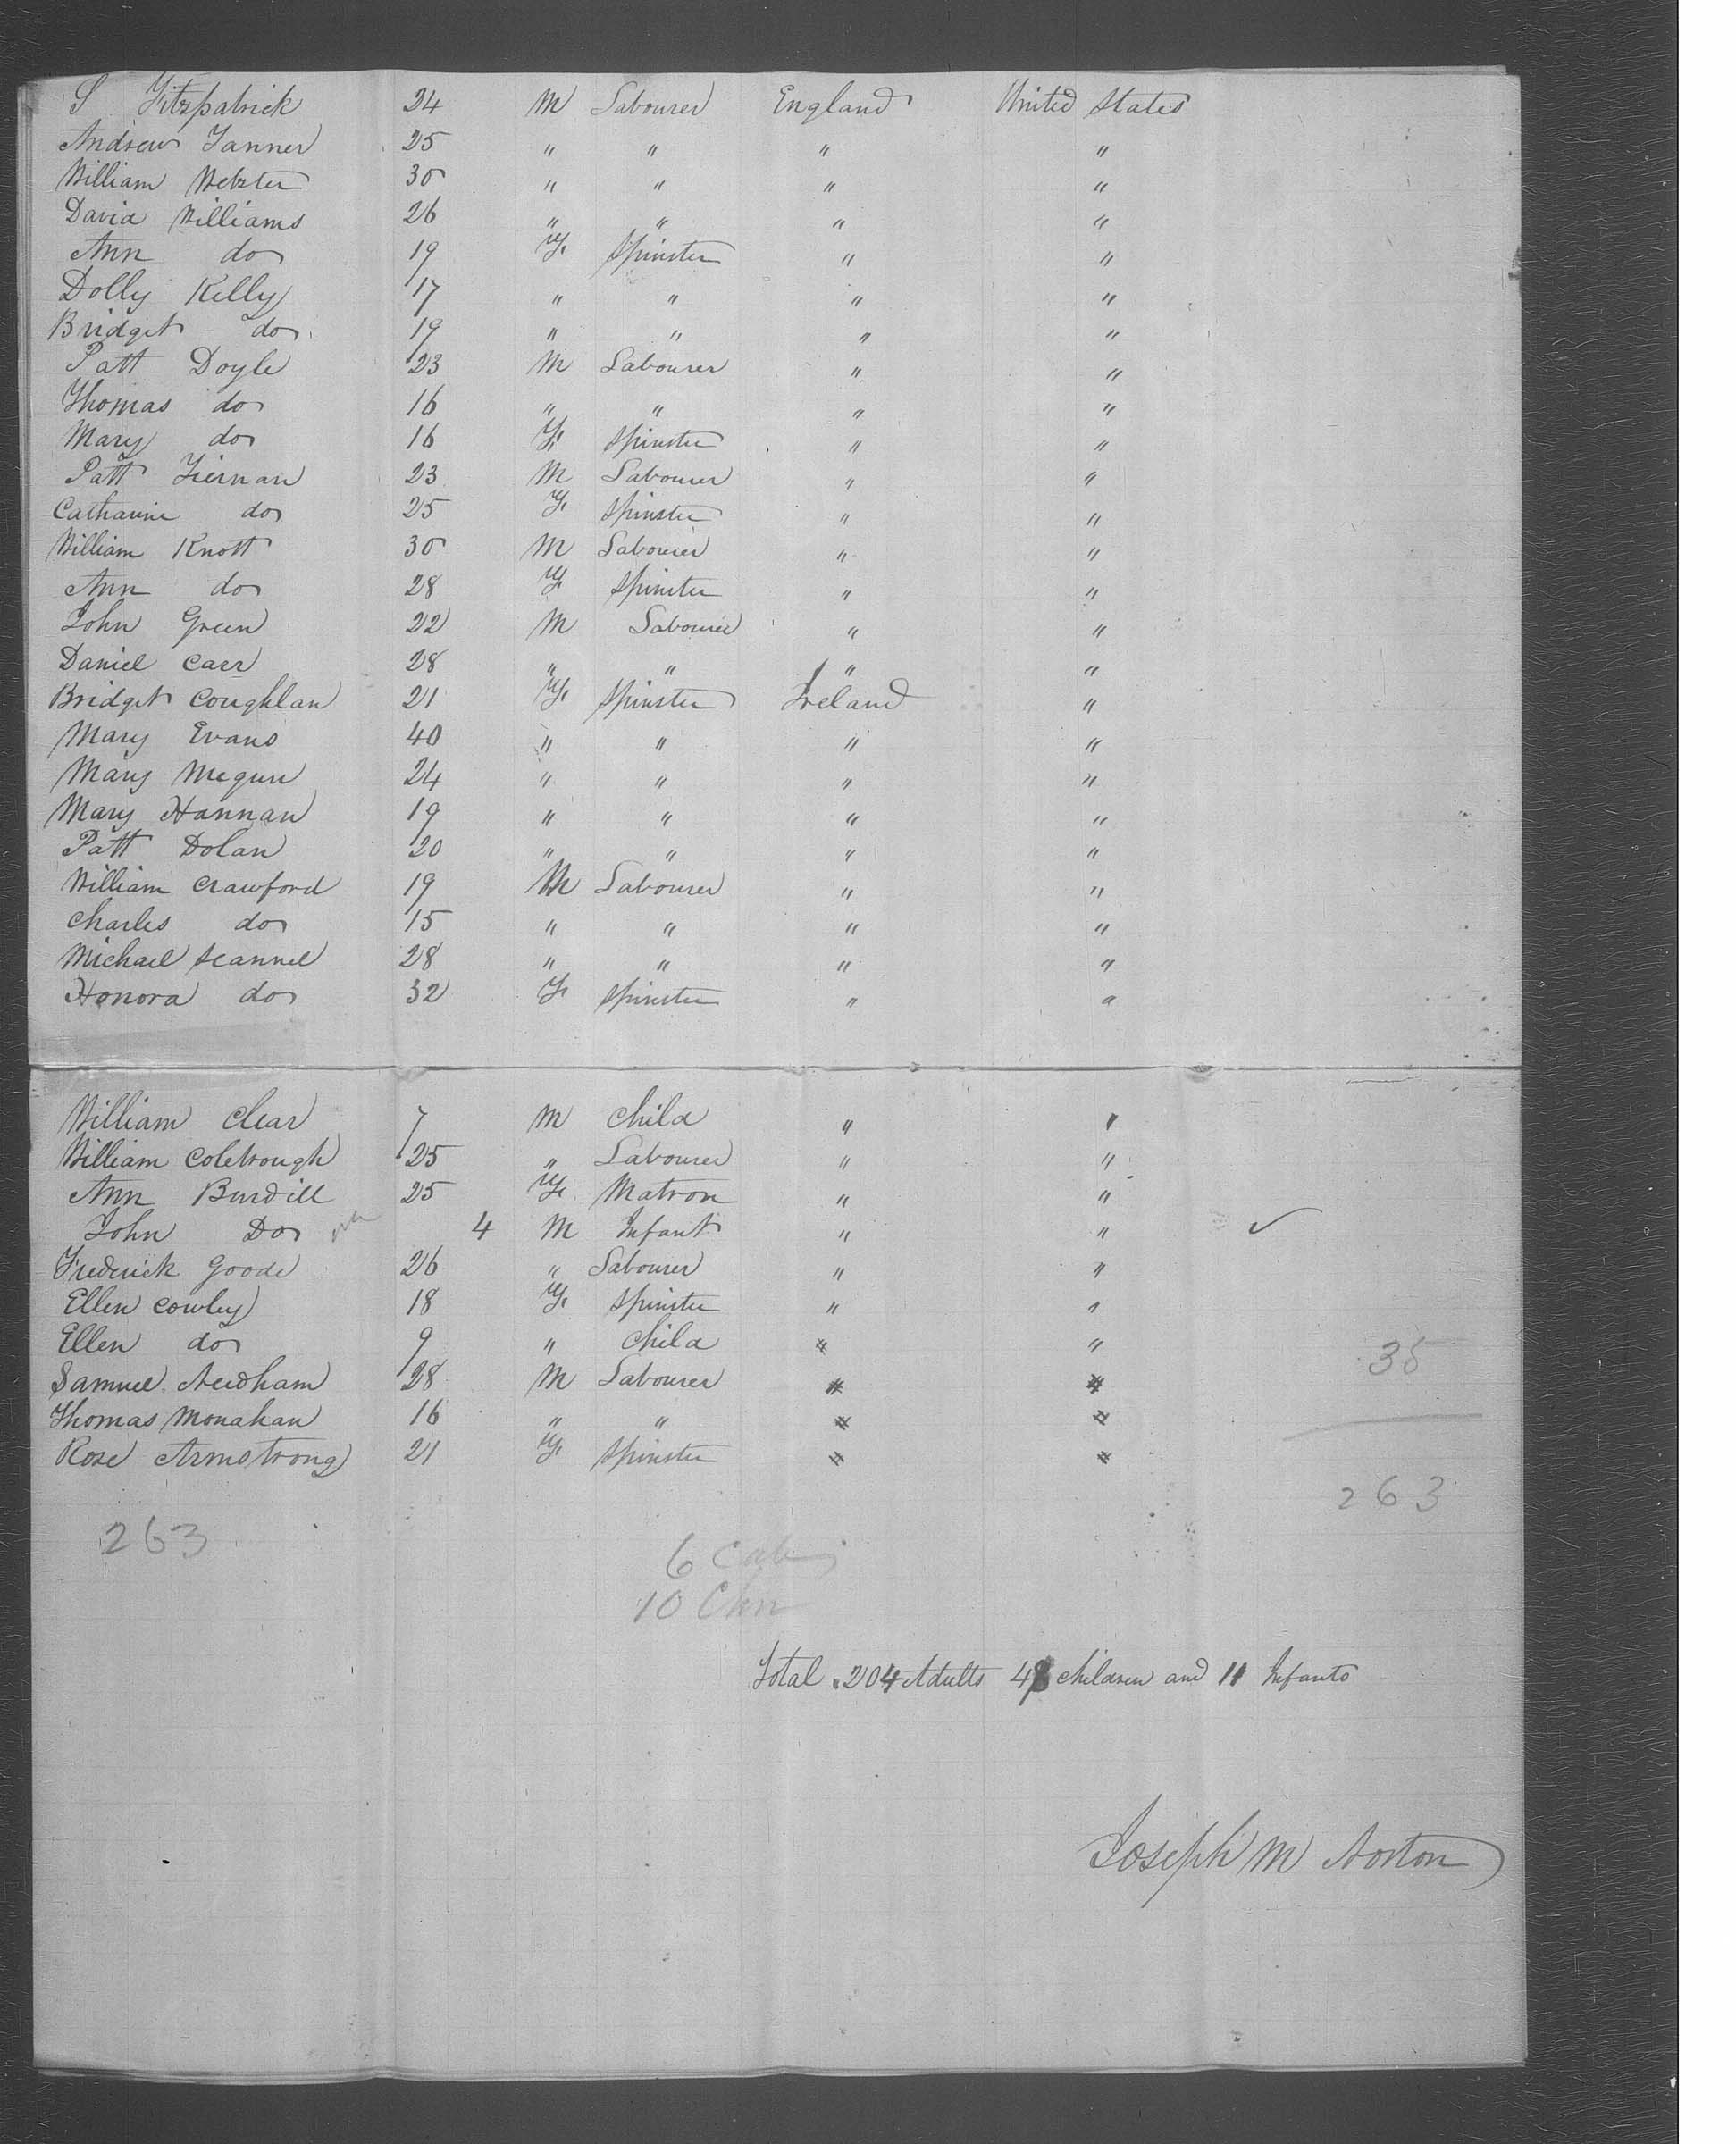 S Fitzpatrick 24 M Labourer England United States
Andrew Tanner 25 " " " "
William Webster 30 " " " "
David Williams 26 " " " "
Ann do 19 F. Spinster " "
Dolly Kelly 17 " " " "
Bridget do. 19 " " " "
Patt Doyle 23 M Labourer " "
Thomas do 16 " " " "
Mary do 16 F. Spinster " "
Patt Tiernan 23 M Labourer " "
Catharine do 25 F. Spinster " "
William Knott 30 M Labourer " "
Ann do 28 F. Spinster " "
John Green 22 M Labourer " "
Daniel Carr 28 " " " "
Bridget Coughlan 21 F. Spinster Ireland "
Mary Evans 40 " " " "
Mary Megun 24 " " " "
Mary Hannan 19 " " " "
Patt Dolan 20 " " " "
William Crawford 19 M Labourer " "
Charles do 15 " " " "
Michael Scannel 28 " " " "
Honora do 32 F. Spinster " "
William Clear 7 M Child " "
William Coletrough 25 " Labourer " "
Ann Burdill 25 F. Matron " "
John Do 4 M Infant " " ✓
Frederick Goode 26 " Labourer " "
Ellen Cowley 18 F. Spinster " "
Ellen do 9 " Child " "
Samuel Needham 28 M Labourer " "
35
Thomas Monahan 16 " " " "
Rose Armstrong 21 F. Spinster " "
263
263
6 Cab
10 Chn
Total 204 Adults 48 Children and 11 Infants
Joseph M Norton